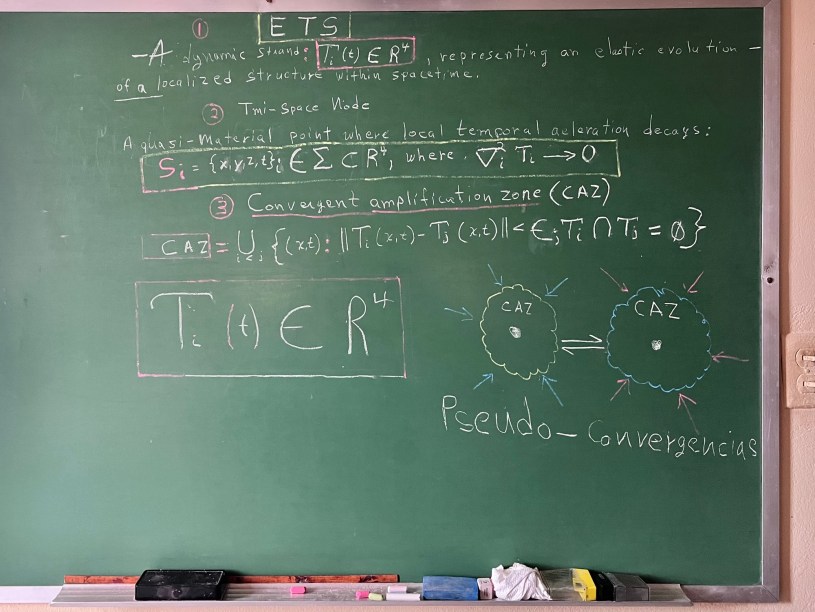 ① ETS
-A dynamic strand: Tᵢ(t) ∈ R⁴, representing an elastic evolution -
of a localized structure within spacetime.
② Tmi-Space Node
A quasi-Material point where local temporal aceleration decays:
Sᵢ = {x,y,z,t}ᵢ ∈ Σ ⊂ R⁴, where. ∇²ᵢ Tᵢ → 0
③ Convergent amplification zone (CAZ)
CAZ = ⋃ᵢ<ⱼ {(x,t): ||Tᵢ(x,t) - Tⱼ(x,t)|| < ∈; Tᵢ ∩ Tⱼ = ∅}
Tᵢ(t) ∈ R⁴
CAZ ⇌ CAZ
Pseudo-Convergencias